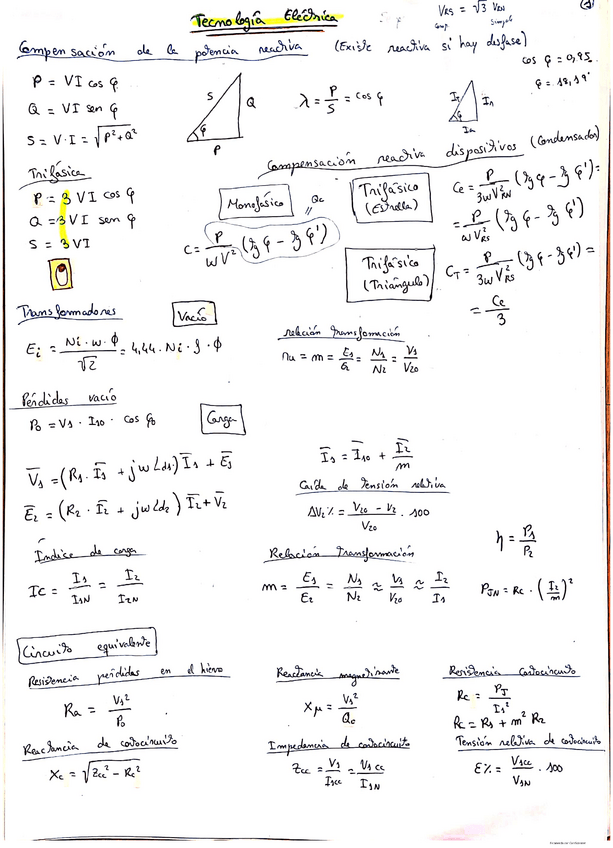 Tecnología Eléctrica
V_RS = √3 V_RN
Compensación de la potencia reactiva (Existe reactiva si hay desfase)
cos φ = 0,95
φ = 18,19°
P = VI cos φ
Q = VI sen φ
S = V·I = √(P²+Q²)
S Q φ P
λ = P/S = cos φ
Trifásica
P = 3 VI cos φ
Q = 3 VI sen φ
S = 3 VI
Compensación reactiva dispositivos (Condensador)
Monofásico
Qc
C = P/(wV²) (tg φ - tg φ')
Trifásico
(Estrella)
Ce = P/(3wV²_RN) (tg φ - tg φ') =
= P/(wV²_RS) (tg φ - tg φ')
Trifásico
(Triángulo)
C_T = P/(3wV²_RS) (tg φ - tg φ') =
= Ce/3
Transformadores
Vacío
Ei = (Ni · w · ϕ)/√2 = 4,44 · Ni · f · ϕ
relación transformación
m = E1/E2 = N1/N2 = V1/V20
Pérdidas vacío
P0 = V1 · I10 · cos φ0
Carga
V̄1 = (R1 · Ī1 + jwLd1) Ī1 + Ē1
Ē2 = (R2 · Ī2 + jwLd2) Ī2 + V̄2
Ī1 = Ī10 + Ī2/m
Caída de Tensión relativa
ΔV2% = (V20 - V2)/V20 · 100
Índice de carga
Ic = I1/I1N = I2/I2N
Relación Transformación
m = E1/E2 = N1/N2 ≈ V1/V20 ≈ I2/I1
η = P1/P2
PJN = Rc · (I2/m)²
Circuito equivalente
Resistencia pérdidas en el hierro
Ra = V1²/P0
Reactancia magnetizante
Xμ = V1²/Q0
Resistencia Cortocircuito
Rc = PJ/I1²
Rc = R1 + m² R2
Reactancia de cortocircuito
Xc = √(Zcc² - Rc²)
Impedancia de cortocircuito
Zcc = V1/I1cc = V1cc/I1N
Tensión relativa de cortocircuito
E% = V1cc/V1N · 100